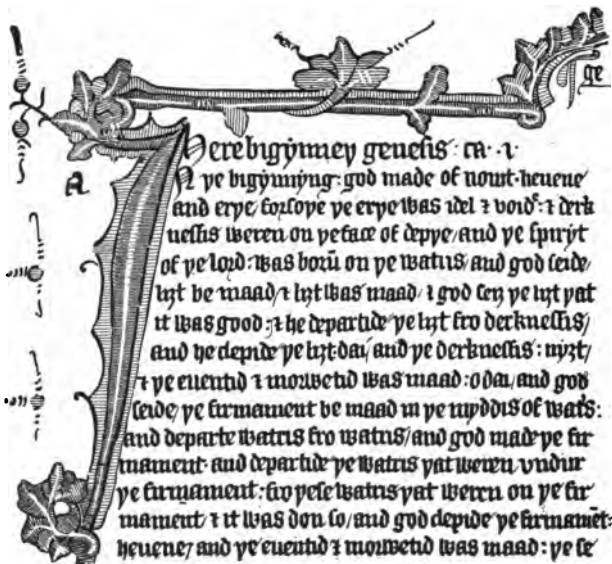 ge
Here bigynneþ genesis : ca . i .
A
N þe bigynnyng : god made of nouȝt · heuene
and erþe / forsoþe þe erþe was idel ⁊ void : ⁊ derk
nessis weren on þe face of depþe / and þe spiryt
of þe lord : was borū on þe watris / and god seide /
liȝt be maad / ⁊ liȝt was maad · ⁊ god seȝ þe liȝt þat
it was good : ⁊ he departide þe liȝt fro derknessis /
and he clepide þe liȝt · dai / and þe derknessis : nyȝt /
⁊ þe euentid ⁊ morwetid was maad : o dai / and god
seide / þe firmament be maad in þe myddis of watrs :
and departe watris fro watris / and god made þe fir
mament · and departide þe watris þat weren vndur
þe firmament : fro þese watris þat weren on þe fir
mament ⁊ it was don so / and god clepide þe firmamēt :
heuene / and þe euentid ⁊ morwetid was maad : þe se